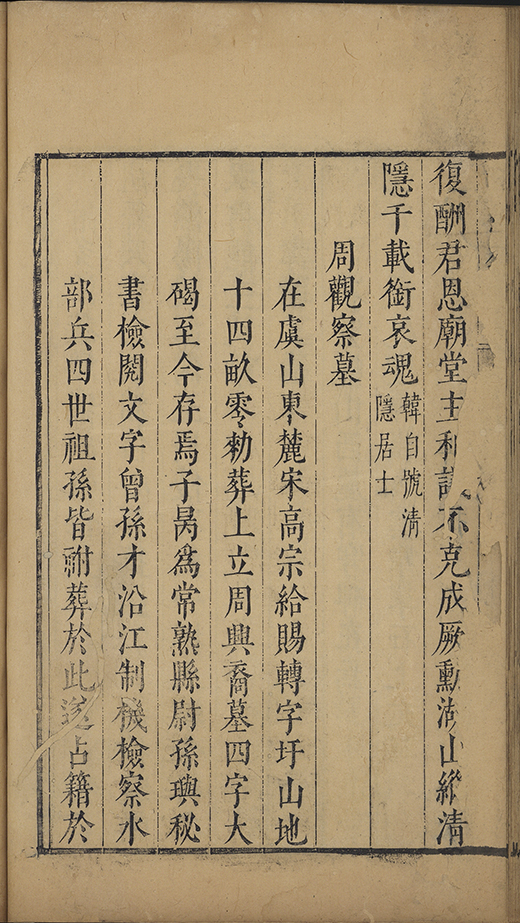 復酬君恩廟堂主和議不克成厥勳湖山縱清
隱千載銜哀魂韓自號清隱居士
周觀察墓
在虞山東麓宋高宗給賜轉字圩山地
十四畝零勅葬上立周興裔墓四字大
碣至今存焉子昺為常熟縣尉孫璵秘
書檢閱文字曾孫才沿江制機檢察水
部兵四世祖孫皆祔葬於此遂占籍於